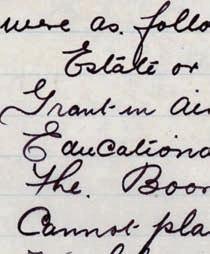 were as follo
Estate or
Grant-in Aid
Educationa
The. Boor
Cannot pla